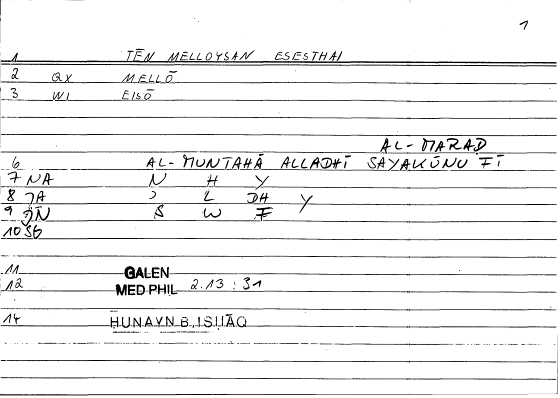 1
1 TĒN MELLOYSAN ESESTHAI
2 QX MELLŌ
3 WI EISŌ
AL-MARAD
6 AL-MUNTAHĀ ALLADHĪ SAYAKŪNU FĪ
7 NA N H Y
8 JA J L DH Y
9 JN S W F
10 SG
11 GALEN
12 MED PHIL 2.13 : 31
14 HUNAYN B. ISḤĀQ